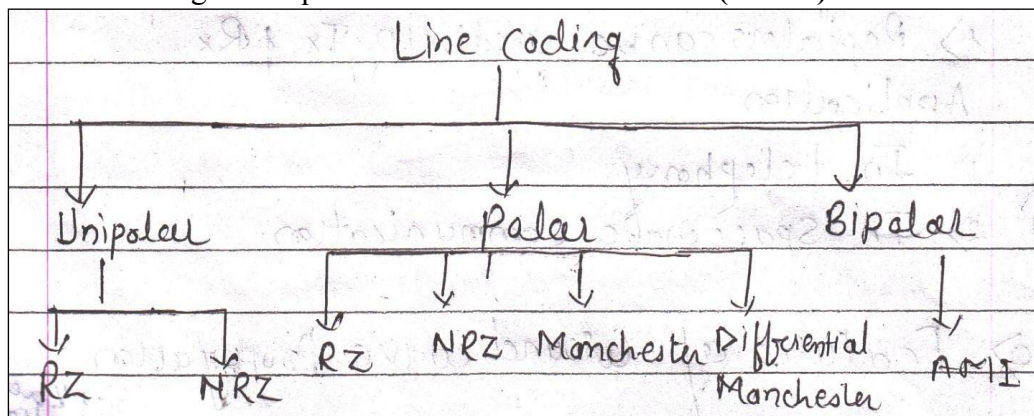 Line coding
Unipolar Polar Bipolar
RZ NRZ RZ NRZ Manchester Differential Manchester AMI